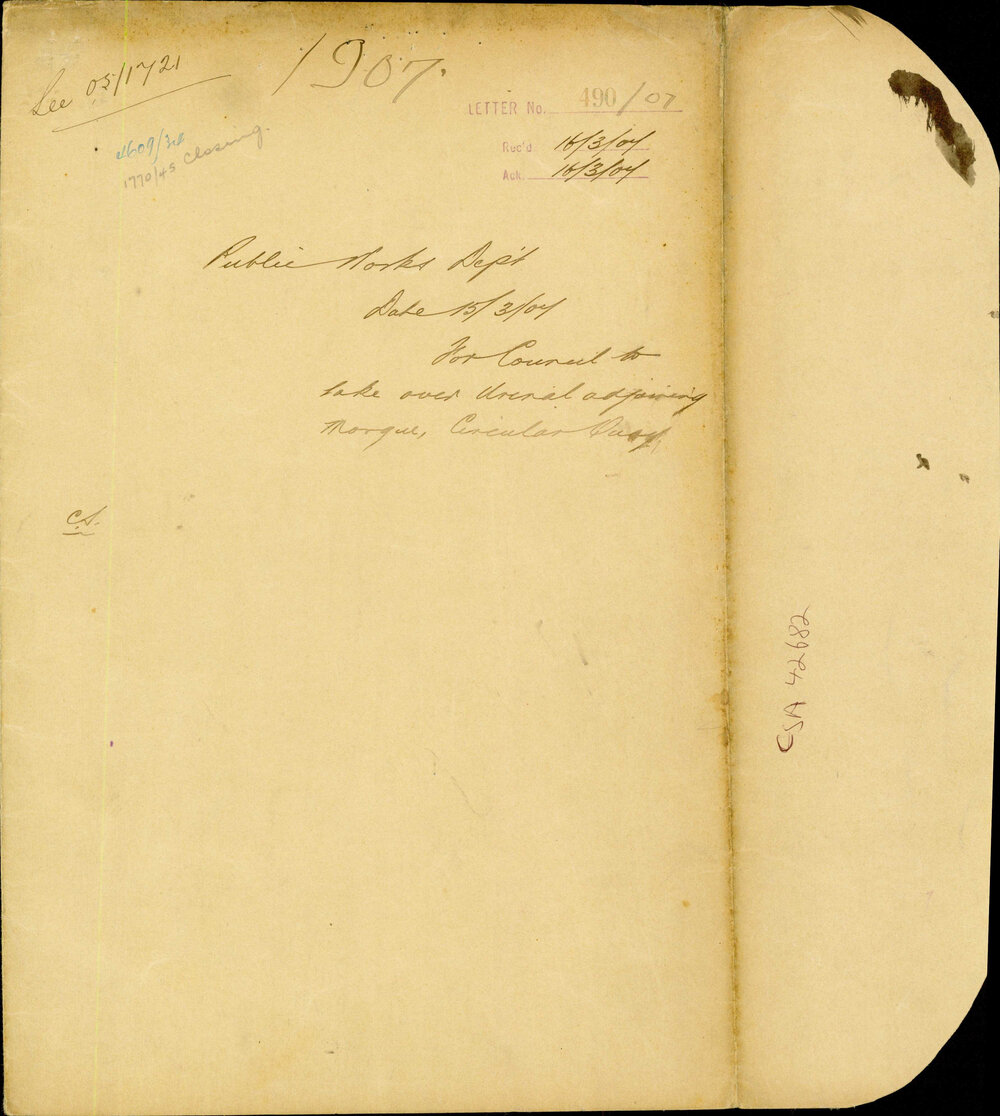 See 05/1721
1907.
LETTER No. 490/07
4609/38
1770/45 Closing.
Rec'd. 16/3/07
Ack. 16/3/07
Public Works Dep't
Date 15/3/07
For Council to
take over Urinal adjoining
Morgue, Circular Quay
C.S.
CSA 42682